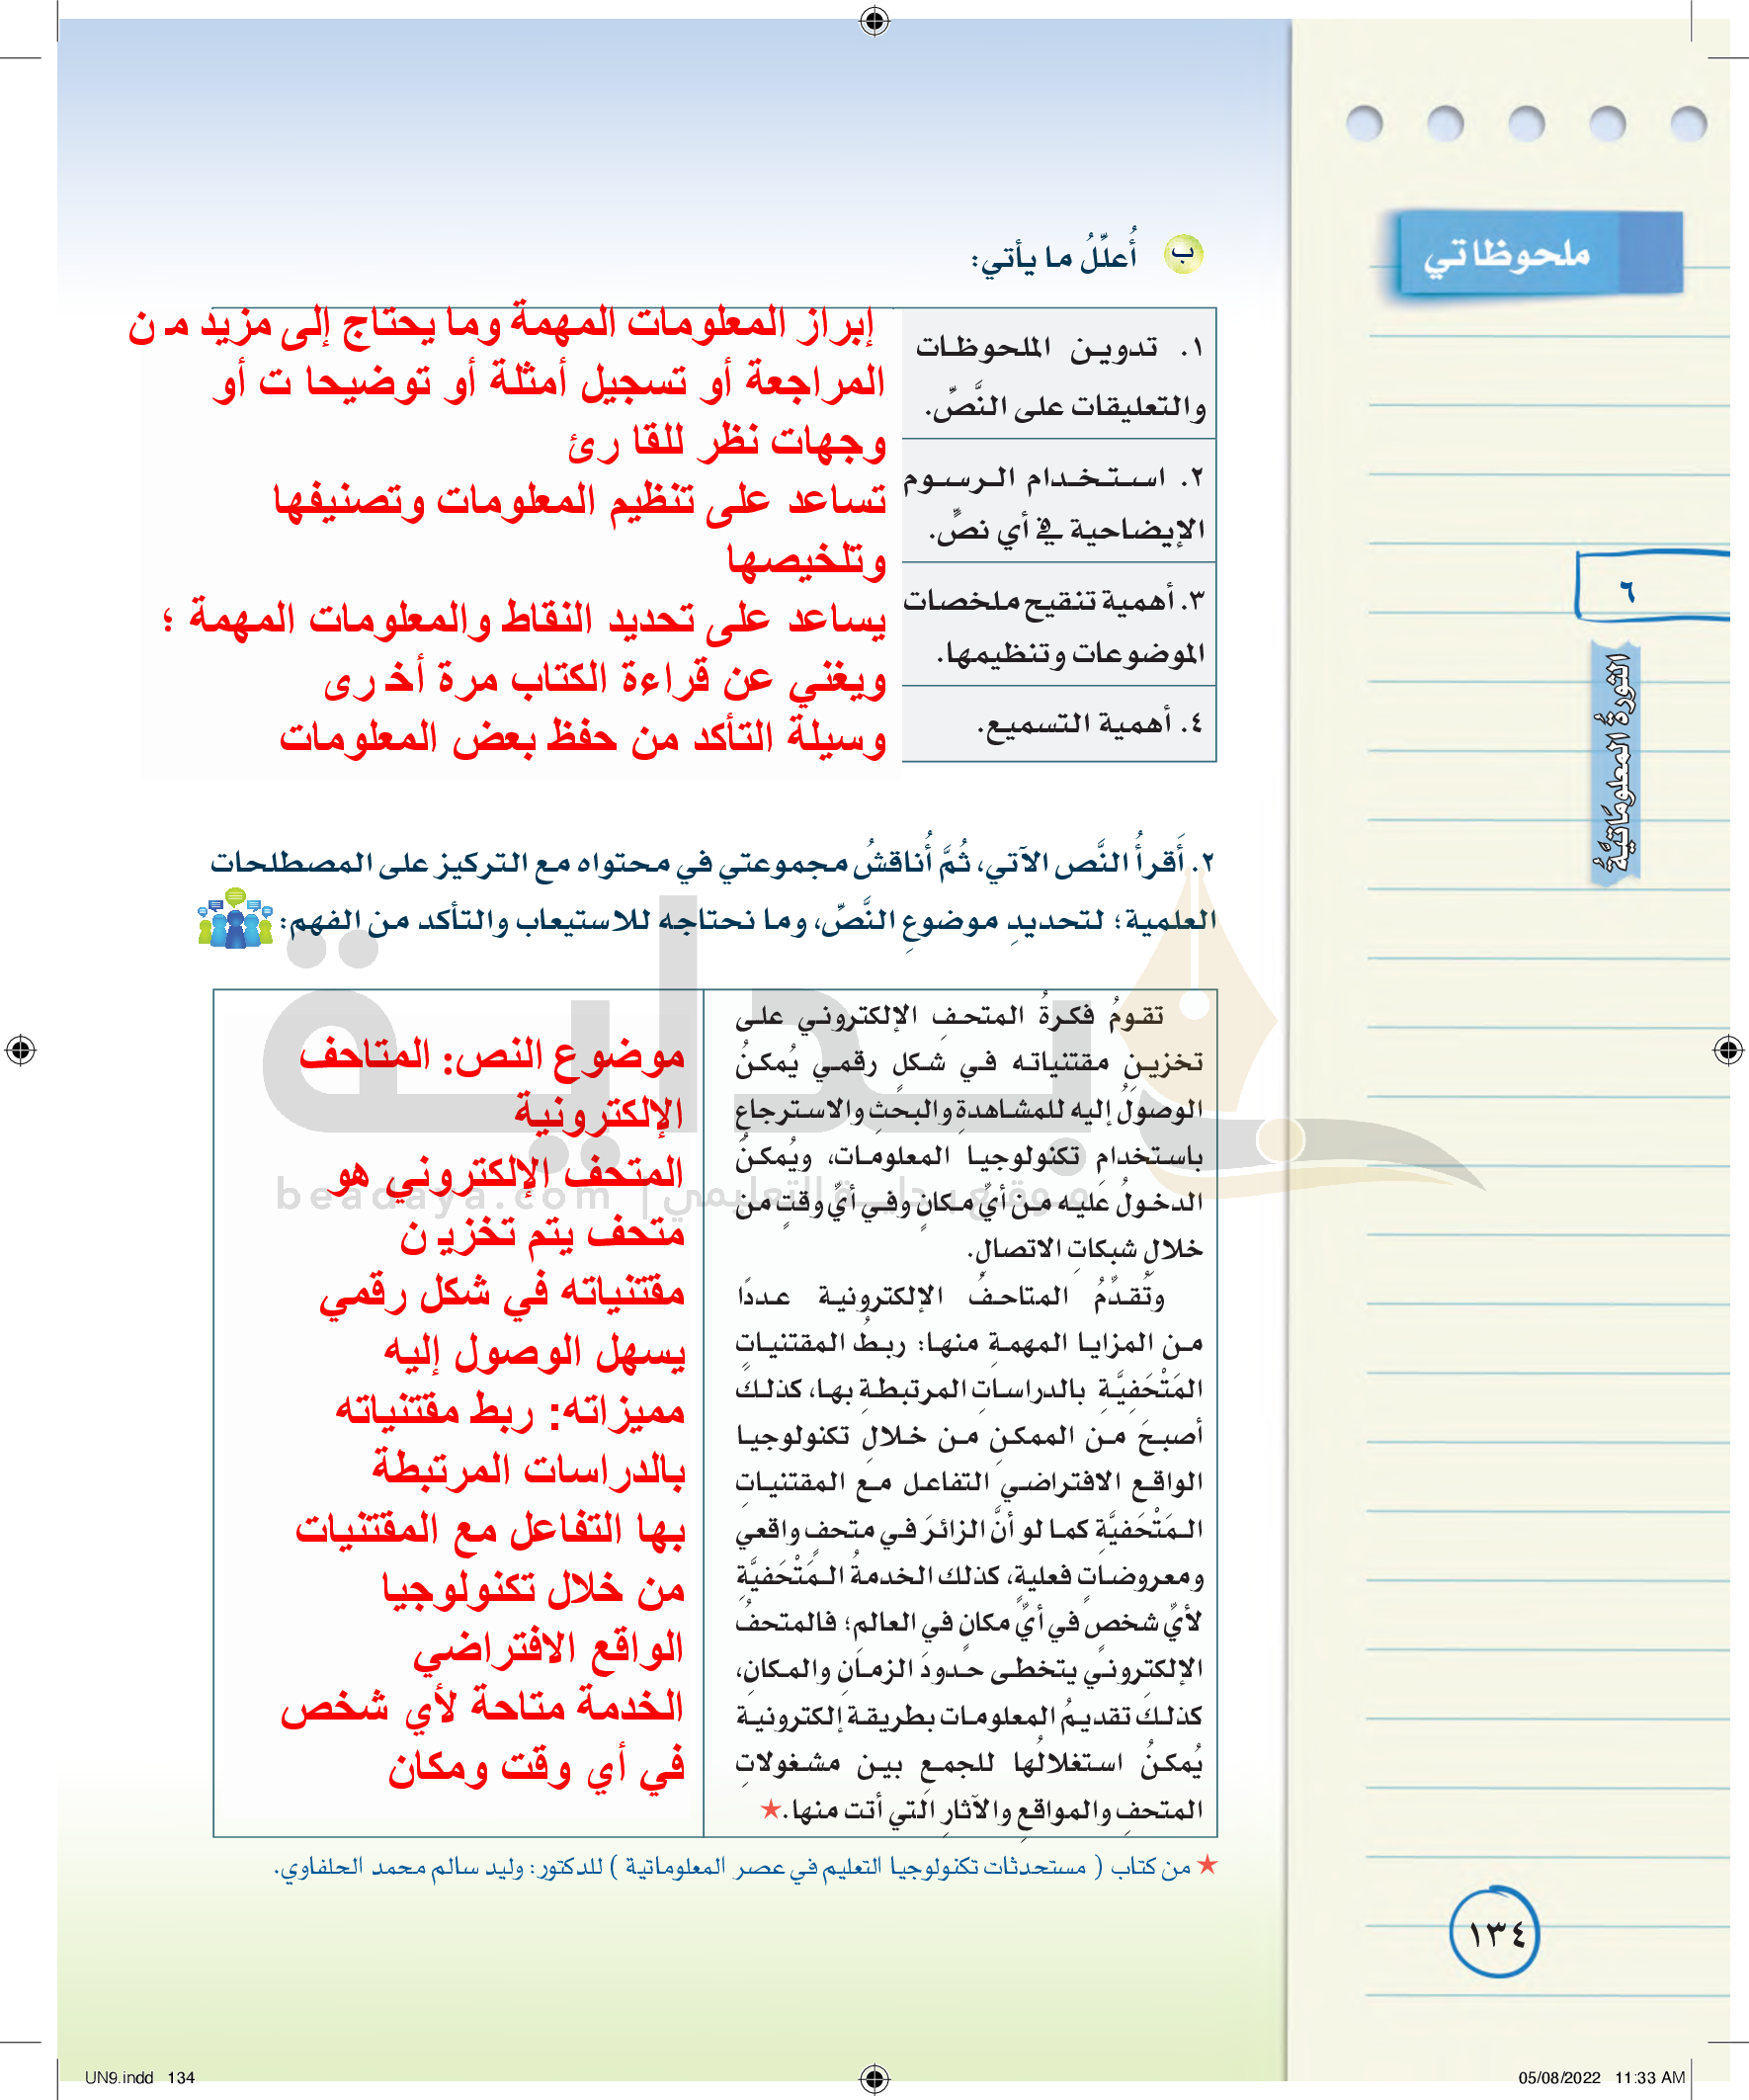 ملحوظاتي
٦
الثورةُ المعلوماتيَّةُ
ب أُعلِّلُ ما يأتي:
١. تدوين الملحوظات
والتعليقات على النَّصِّ.
إبراز المعلومات المهمة وما يحتاج إلى مزيد من
المراجعة أو تسجيل أمثلة أو توضيحا ت أو
وجهات نظر للقا رئ
٢. استخدام الرسوم
الإيضاحية في أي نصٍّ.
تساعد على تنظيم المعلومات وتصنيفها
وتلخيصها
٣. أهمية تنقيح ملخصات
الموضوعات وتنظيمها.
يساعد على تحديد النقاط والمعلومات المهمة ؛
ويغني عن قراءة الكتاب مرة أخرى
٤. أهمية التسميع.
وسيلة التأكد من حفظ بعض المعلومات
٢. أَقرأُ النَّص الآتي، ثُمَّ أُناقشُ مجموعتي في محتواه مع التركيز على المصطلحات
العلمية؛ لتحديدِ موضوعِ النَّصِّ، وما نحتاجه للاستيعاب والتأكد من الفهم:
تقومُ فكرةُ المتحفِ الإلكتروني على
تخزينِ مقتنياته في شكلٍ رقمي يُمكنُ
الوصولُ إليه للمشاهدةِ والبحثِ والاسترجاعِ
باستخدامِ تكنولوجيا المعلومات، ويُمكنُ
الدخولُ عليه من أيِّ مكانٍ وفي أيِّ وقتٍ من
خلالِ شبكاتِ الاتصالِ.
وتُقدِّمُ المتاحفُ الإلكترونية عددًا
من المزايا المهمةِ منها: ربطُ المقتنياتِ
المَتْحَفِيَّةِ بالدراساتِ المرتبطةِ بها، كذلكَ
أصبحَ من الممكنِ من خلالِ تكنولوجيا
الواقع الافتراضي التفاعل مع المقتنياتِ
المَتْحَفيَّةِ كما لو أنَّ الزائرَ في متحفٍ واقعي
ومعروضاتٍ فعليةٍ، كذلك الخدمةُ المَتْحَفيَّةِ
لأيِّ شخصٍ في أيِّ مكانٍ في العالمِ؛ فالمتحفُ
الإلكترونيُّ يتخطى حُدودَ الزمانِ والمكانِ،
كذلكَ تقديمُ المعلومات بطريقة إلكترونية
يُمكنُ استغلالُها للجمعِ بين مشغولاتِ
المتحفِ والمواقعِ والآثارِ التي أتت منها.★
موضوع النص: المتاحف
الإلكترونية
المتحف الإلكتروني هو
متحف يتم تخزين
مقتنياته في شكل رقمي
يسهل الوصول إليه
مميزاته: ربط مقتنياته
بالدراسات المرتبطة
بها التفاعل مع المقتنيات
من خلال تكنولوجيا
الواقع الافتراضي
الخدمة متاحة لأي شخص
في أي وقت ومكان
بداية
موقع بداية التعليمي | beadaya.com
★ من كتاب ( مستحدثات تكنولوجيا التعليم في عصر المعلوماتية ) للدكتور: وليد سالم محمد الحلفاوي.
١٣٤
UN9.indd 134
05/08/2022 11:33 AM